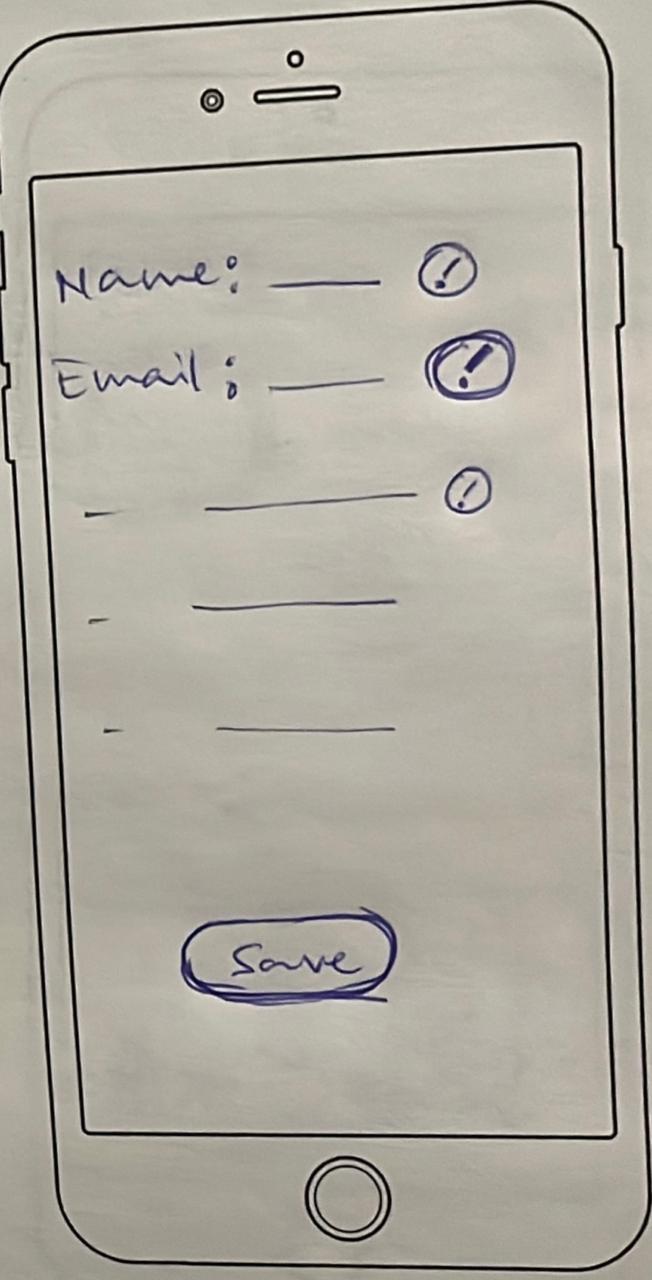 Name: ___ !
Email: ___ !
- ___ !
- ___
- ___
Save